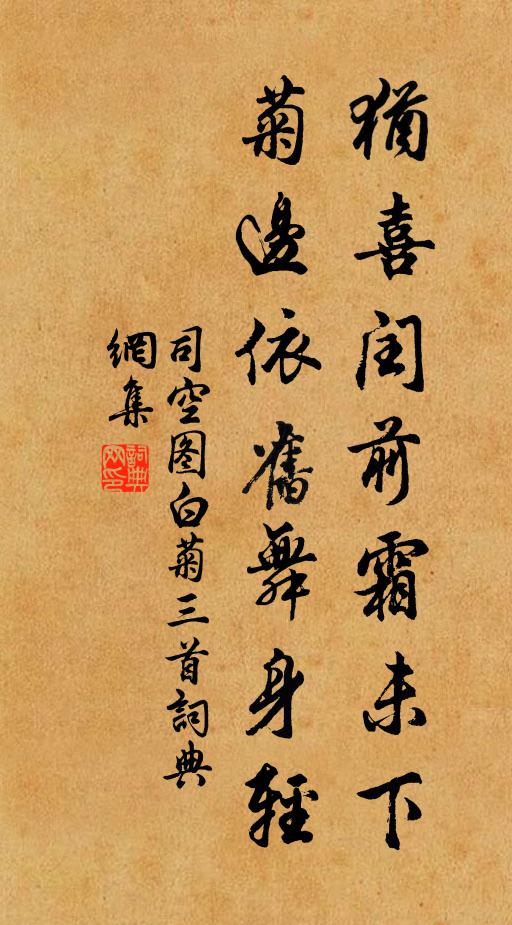 猶喜閏前霜未下
菊邊依舊舞身輕
司空图白菊三首詞典
網集
詞典網印